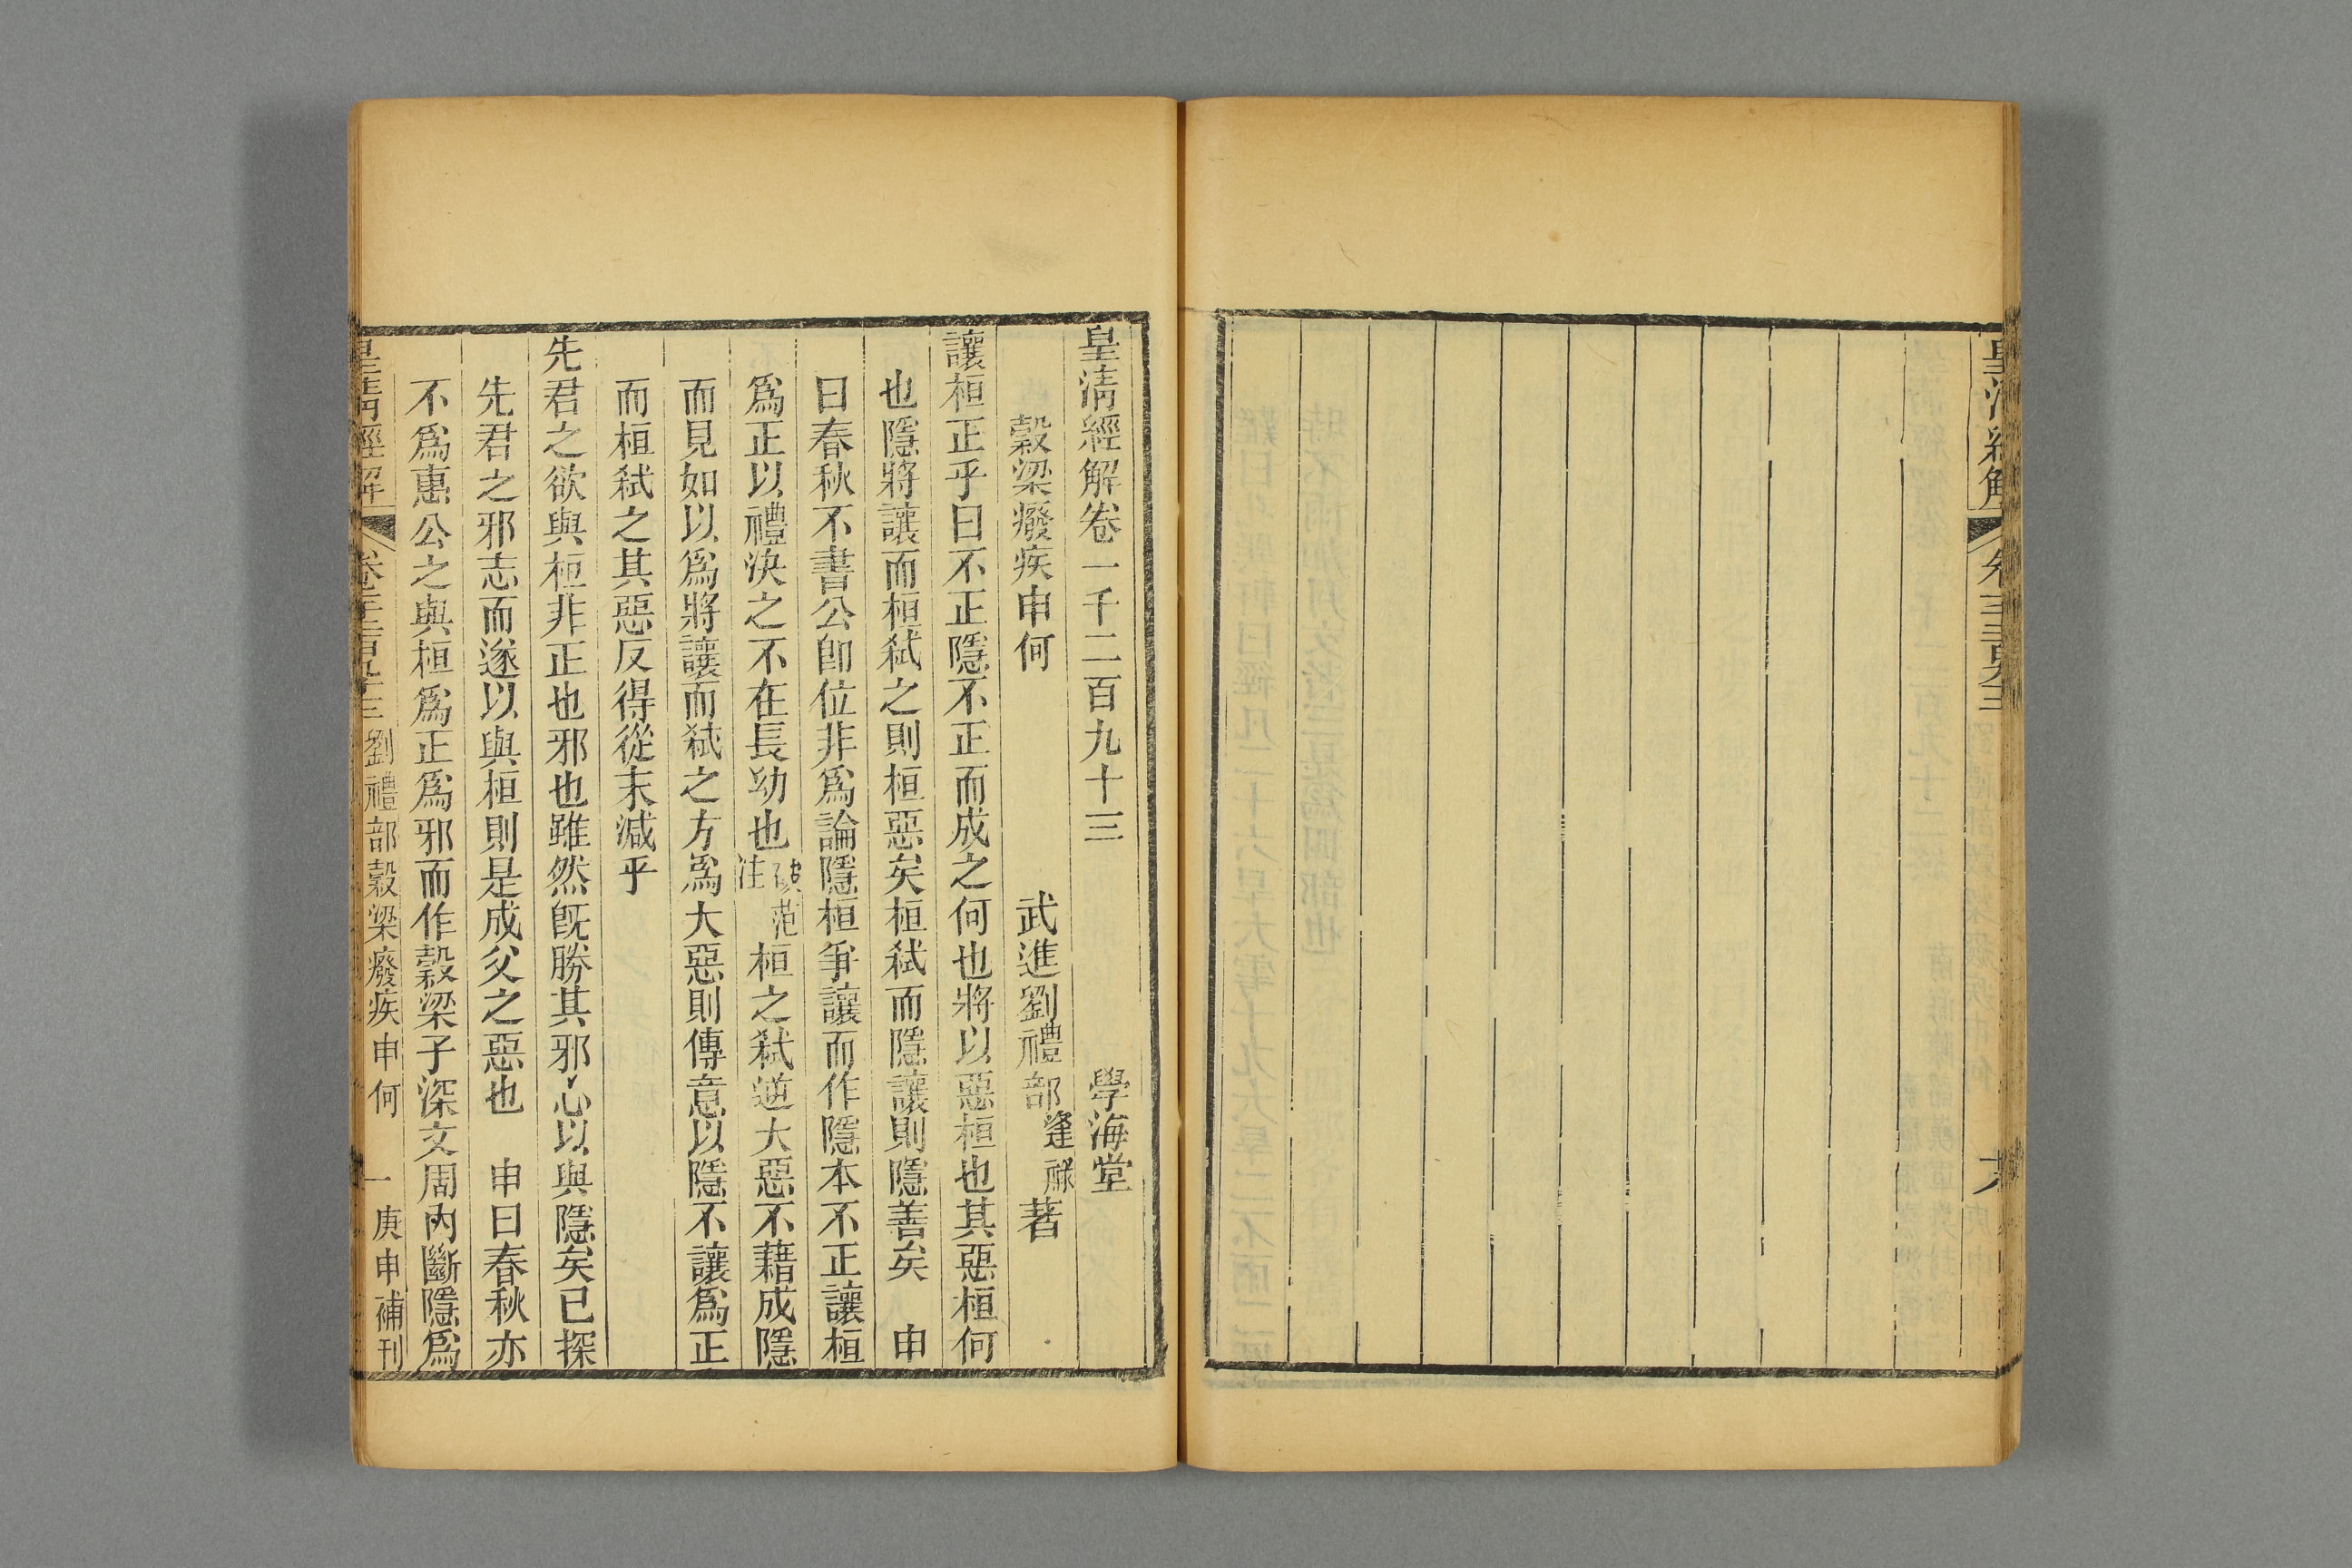 皇清經解
六
皇清經解卷一千二百九十三 學海堂
穀梁癈疾申何 武進劉禮部逢祿著
讓桓正乎曰不正隱不正而成之何也將以惡桓也其惡桓何
也隱將讓而桓弒之則桓惡矣桓弒而隱讓則隱善矣 申
曰春秋不書公卽位非爲論隱桓爭讓而作隱本不正讓桓
爲正以禮決之不在長幼也破范注桓之弒逆大惡不藉成隱
而見如以爲將讓而弒之方爲大惡則傳意以隱不讓爲正
而桓弒之其惡反得從末減乎
先君之欲與桓非正也邪也雖然旣勝其邪心以與隱矣已探
先君之邪志而遂以與桓則是成父之惡也 申曰春秋亦
不爲惠公之與桓爲正爲邪而作穀梁子深文周內斷隱爲
皇清經解 卷千二百九十三 劉禮部穀梁癈疾申何 一 庚申補刊